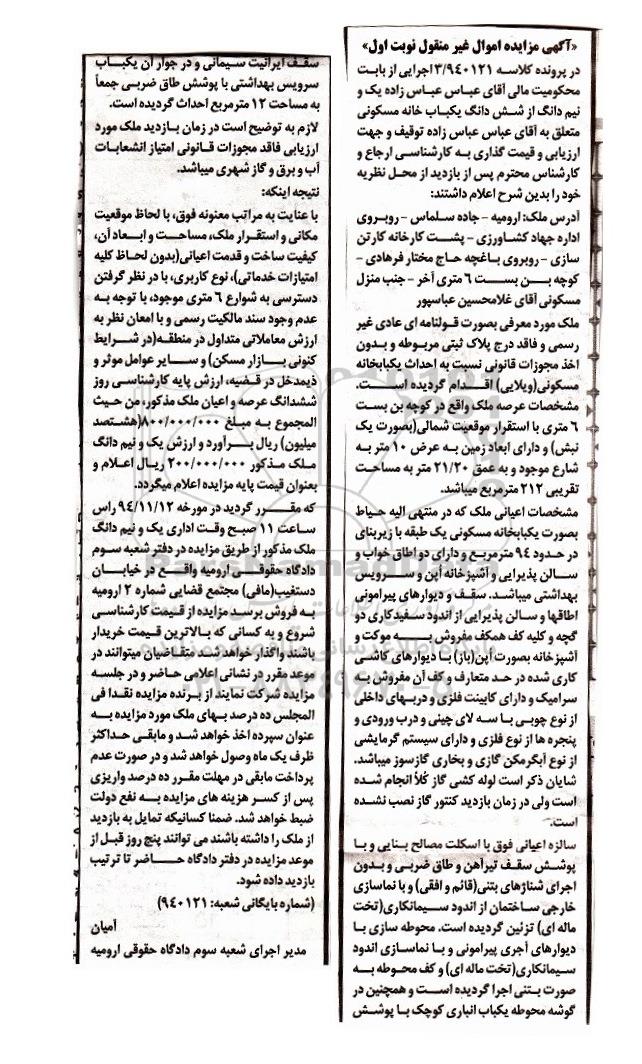 «آگهی مزایده اموال غیر منقول نوبت اول»
در پرونده کلاسه ۳/۹۴۰۱۲۱ اجرایی از بابت
محکومیت مالی آقای عباس عباس زاده یک و
نیم دانگ از شش دانگ یکباب خانه مسکونی
متعلق به آقای عباس عباس زاده توقیف و جهت
ارزیابی و قیمت گذاری به کارشناسی ارجاع و
کارشناس محترم پس از بازدید از محل نظریه
خود را بدین شرح اعلام داشتند:
آدرس ملک: ارومیه - جاده سلماس - روبروی
اداره جهاد کشاورزی - پشت کارخانه کارتن
سازی - روبروی باغچه حاج مختار فرهادی -
کوچه بن بست ۶ متری آخر - جنب منزل
مسکونی آقای غلامحسین عباسپور
ملک مورد معرفی بصورت قولنامه ای عادی غیر
رسمی و فاقد درج پلاک ثبتی مربوطه و بدون
اخذ مجوزات قانونی نسبت به احداث یکبابخانه
مسکونی(ویلایی) اقدام گردیده است.
مشخصات عرصه ملک واقع در کوچه بن بست
۶ متری با استقرار موقعیت شمالی(بصورت یک
نبش) و دارای ابعاد زمین به عرض ۱۰ متر به
شارع موجود و به عمق ۲۱/۲۰ متر به مساحت
تقریبی ۲۱۲ مترمربع میباشد.
مشخصات اعیانی ملک که در منتهی الیه حیاط
بصورت یکبابخانه مسکونی یک طبقه با زیربنای
در حدود ۹۴ مترمربع و دارای دو اطاق خواب و
سالن پذیرایی و آشپزخانه اپن و سرویس
بهداشتی میباشد. سقف و دیوارهای پیرامونی
اطاقها و سالن پذیرایی از اندود سفیدکاری دو
گچه و کلیه کف همکف مفروش به موکت و
آشپزخانه بصورت اپن(باز) با دیوارهای کاشی
کاری شده در حد متعارف و کف آن مفروش به
سرامیک و دارای کابینت فلزی و دربهای داخلی
از نوع چوبی با سه لای چینی و درب ورودی و
پنجره ها از نوع فلزی و دارای سیستم گرمایشی
از نوع آبگرمکن گازی و بخاری گازسوز میباشد.
شایان ذکر است لوله کشی گاز کُلاً انجام شده
است ولی در زمان بازدید کنتور گاز نصب نشده
است.
سالزه اعیانی فوق با اسکلت مصالح بنایی و با
پوشش سقف تیرآهن و طاق ضربی و بدون
اجرای شناژهای بتنی(قائم و افقی) و با نماسازی
خارجی ساختمان از اندود سیمانکاری(تخت
ماله ای) تزئین گردیده است. محوطه سازی با
دیوارهای آجری پیرامونی و با نماسازی اندود
سیمانکاری(تخت ماله ای) و کف محوطه به
صورت بتنی اجرا گردیده است و همچنین در
گوشه محوطه یکباب انباری کوچک با پوشش
سقف ایرانیت سیمانی و در جوار آن یکباب
سرویس بهداشتی با پوشش طاق ضربی جمعاً
به مساحت ۱۲ مترمربع احداث گردیده است.
لازم به توضیح است در زمان بازدید ملک مورد
ارزیابی فاقد مجوزات قانونی امتیاز انشعابات
آب و برق و گاز شهری میباشد.
نتیجه اینکه:
با عنایت به مراتب معنونه فوق، با لحاظ موقعیت
مکانی و استقرار ملک، مساحت و ابعاد آن،
کیفیت ساخت و قدمت اعیانی(بدون لحاظ کلیه
امتیازات خدماتی)، نوع کاربری، با در نظر گرفتن
دسترسی به شوارع ۶ متری موجود، با توجه به
عدم وجود سند مالکیت رسمی و با امعان نظر به
ارزش معاملاتی متداول در منطقه(در شرایط
کنونی بازار مسکن) و سایر عوامل موثر و
ذیمدخل در قضیه، ارزش پایه کارشناسی روز
ششدانگ عرصه و اعیان ملک مذکور، من حیث
المجموع به مبلغ ۸۰۰/۰۰۰/۰۰۰(هشتصد
میلیون) ریال برآورد و ارزش یک و نیم دانگ
ملک مذکور ۲۰۰/۰۰۰/۰۰۰ ریال اعلام و
بعنوان قیمت پایه مزایده اعلام میگردد.
که مقرر گردید در مورخه ۹۴/۱۱/۱۲ راس
ساعت ۱۱ صبح وقت اداری یک و نیم دانگ
ملک مذکور از طریق مزایده در دفتر شعبه سوم
دادگاه حقوقی ارومیه واقع در خیابان
دستغیب(مافی) مجتمع قضایی شماره ۲ ارومیه
به فروش برسد مزایده از قیمت کارشناسی
شروع و به کسانی که بالاترین قیمت خریدار
باشند واگذار خواهد شد. متقاضیان میتوانند در
موعد مقرر در نشانی اعلامی حاضر و در جلسه
مزایده شرکت نمایند از برنده مزایده نقدا فی
المجلس ده درصد بهای ملک مورد مزایده به
عنوان سپرده اخذ خواهد شد و مابقی حداکثر
ظرف یک ماه وصول خواهد شد و در صورت عدم
پرداخت مابقی در مهلت مقرر ده درصد واریزی
پس از کسر هزینه های مزایده به نفع دولت
ضبط خواهد شد. ضمنا کسانیکه تمایل به بازدید
از ملک را داشته باشند می توانند پنج روز قبل از
موعد مزایده در دفتر دادگاه حاضر تا ترتیب
بازدید داده شود.
(شماره بایگانی شعبه: ۹۴۰۱۲۱)
آمیان
مدیر اجرای شعبه سوم دادگاه حقوقی ارومیه